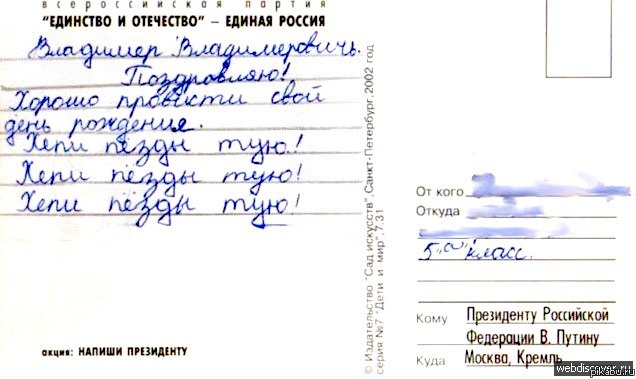 всероссийская партия
"ЕДИНСТВО И ОТЕЧЕСТВО" – ЕДИНАЯ РОССИЯ
Владимер Владимеровичь.
Поздровляю!
Хорошо провести свой
день рождения.
Хепи пёзды тую!
Хепи пёзды тую!
Хепи пёзды тую!
акция: НАПИШИ ПРЕЗИДЕНТУ
© Издательство "Сад искусств", Санкт-Петербург, 2002 год
серия №7 "Дети и мир", 7.31
От кого
Откуда
5 "а" класс.
Кому Президенту Российской
Федерации В. Путину
Куда Москва, Кремль
webdiscover.ru
pikabu.ru